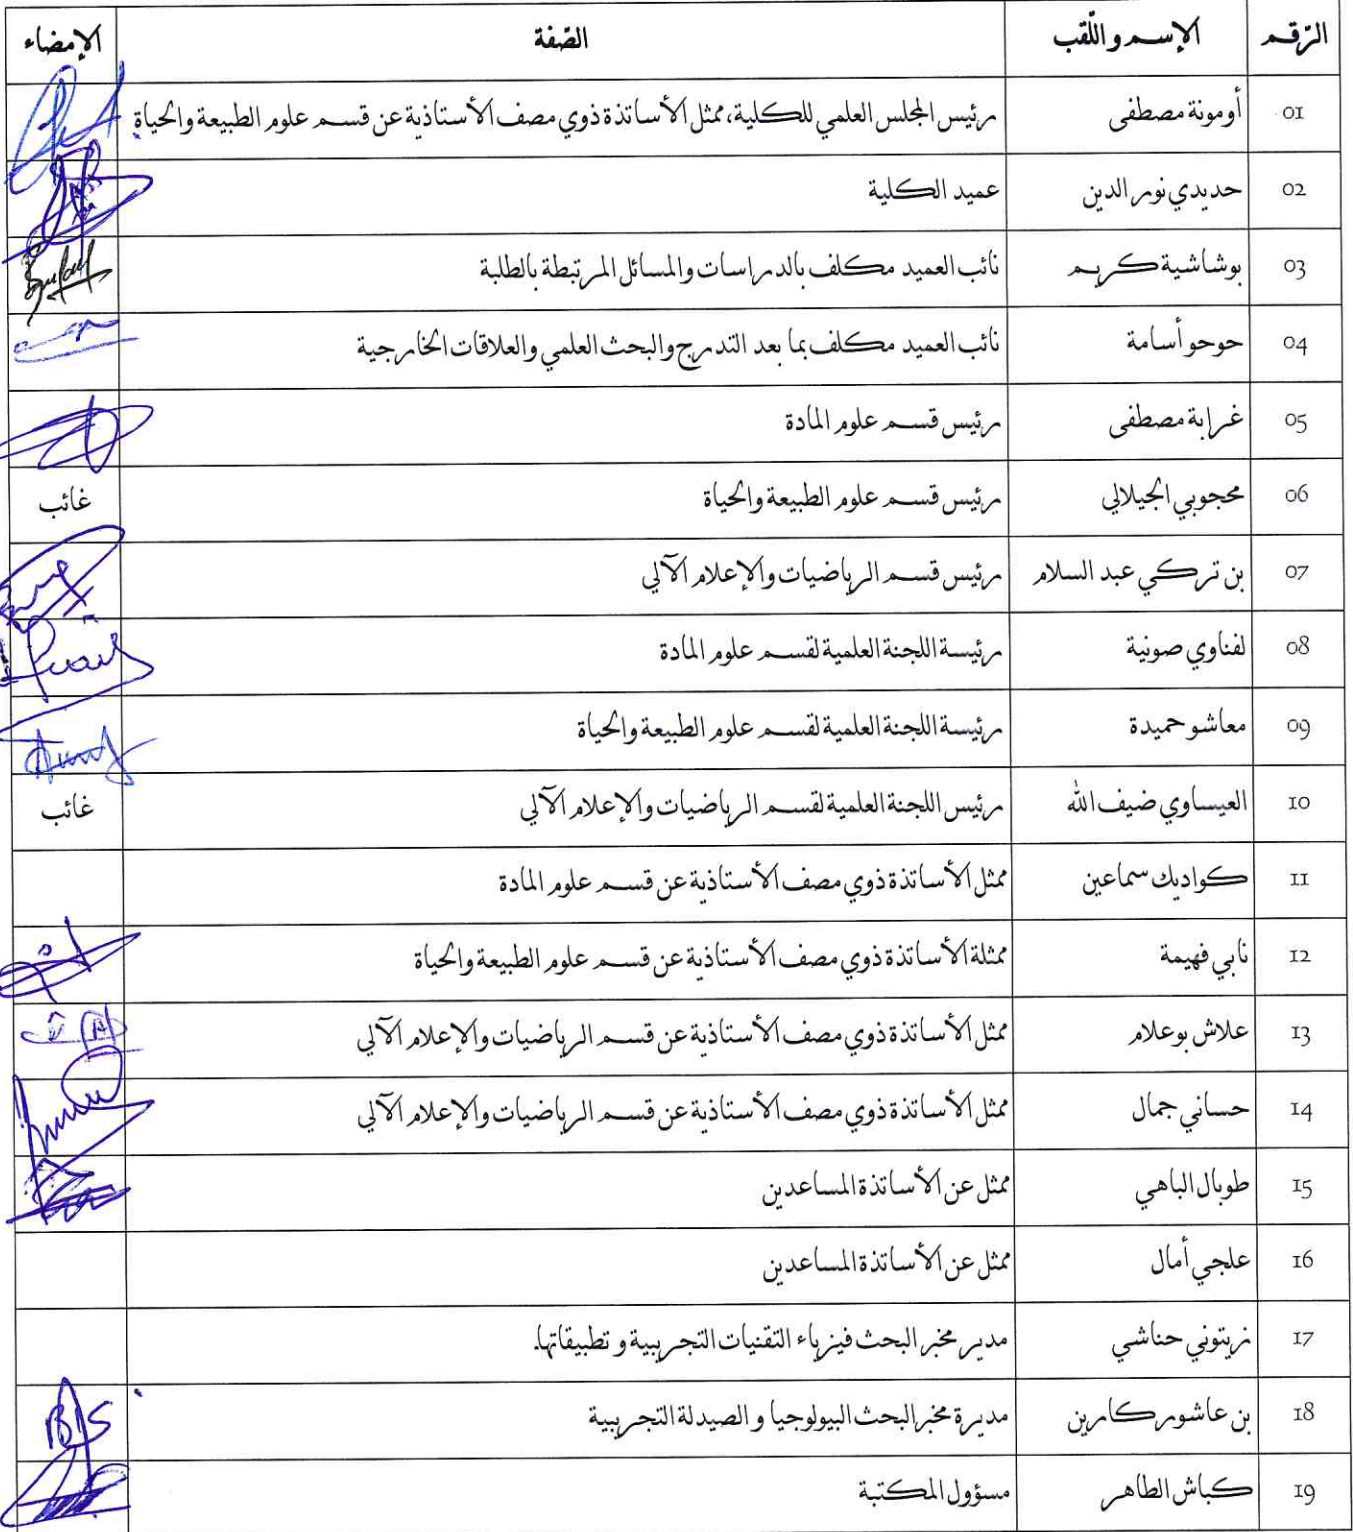 الرّقم الإسم واللّقب الصّفة الإمضاء
01 أومونة مصطفى رئيس المجلس العلمي للكلية، ممثل الأساتذة ذوي مصف الأستاذية عن قسم علوم الطبيعة والحياة
02 حديدي نور الدين عميد الكلية
03 بوشاشية كريم نائب العميد مكلف بالدراسات والمسائل المرتبطة بالطلبة
04 حوحو أسامة نائب العميد مكلف بما بعد التدرج والبحث العلمي والعلاقات الخارجية
05 غرابة مصطفى رئيس قسم علوم المادة
06 محجوبي الجيلالي رئيس قسم علوم الطبيعة والحياة غائب
07 بن تركي عبد السلام رئيس قسم الرياضيات والإعلام الآلي
08 لفناوي صونية رئيسة اللجنة العلمية لقسم علوم المادة
09 معاشو حميدة رئيسة اللجنة العلمية لقسم علوم الطبيعة والحياة
10 العيساوي ضيف الله رئيس اللجنة العلمية لقسم الرياضيات والإعلام الآلي غائب
11 كواديك سماعين ممثل الأساتذة ذوي مصف الأستاذية عن قسم علوم المادة
12 نابي فهيمة ممثلة الأساتذة ذوي مصف الأستاذية عن قسم علوم الطبيعة والحياة
13 علاش بوعلام ممثل الأساتذة ذوي مصف الأستاذية عن قسم الرياضيات والإعلام الآلي
14 حساني جمال ممثل الأساتذة ذوي مصف الأستاذية عن قسم الرياضيات والإعلام الآلي
15 طوبال الباهي ممثل عن الأساتذة المساعدين
16 علجي أمال ممثل عن الأساتذة المساعدين
17 زيتوني حناشي مدير مخبر البحث فيزياء التقنيات التجريبية و تطبيقاتها.
18 بن عاشور كارين مديرة مخبر البحث البيولوجيا و الصيدلة التجريبية
19 كباش الطاهر مسؤول المكتبة